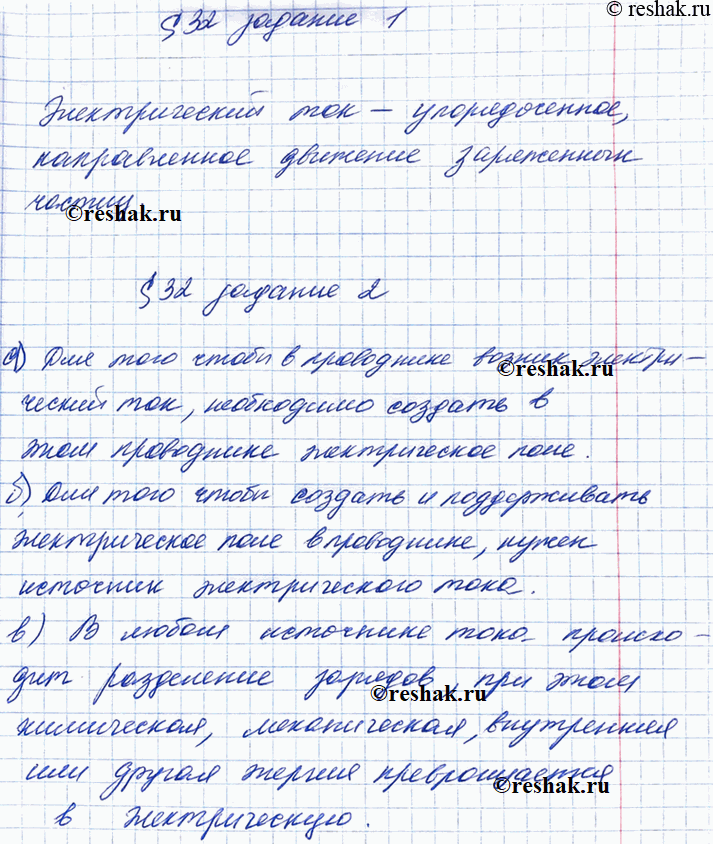 ©reshak.ru
§32 задание 1
Электрический ток – упорядоченное,
направленное движение заряженных
частиц
©reshak.ru
§32 задание 2
а) Для того чтобы в проводнике возник электри-
©reshak.ru
ческий ток, необходимо создать в
этом проводнике электрическое поле.
б) Для того чтобы создать и поддерживать
электрическое поле в проводнике, нужен
источник электрического тока.
в) В любом источнике тока происхо-
дит разделение зарядов, при этом
©reshak.ru
химическая, механическая, внутренняя
или другая энергия превращается
©reshak.ru
в электрическую.